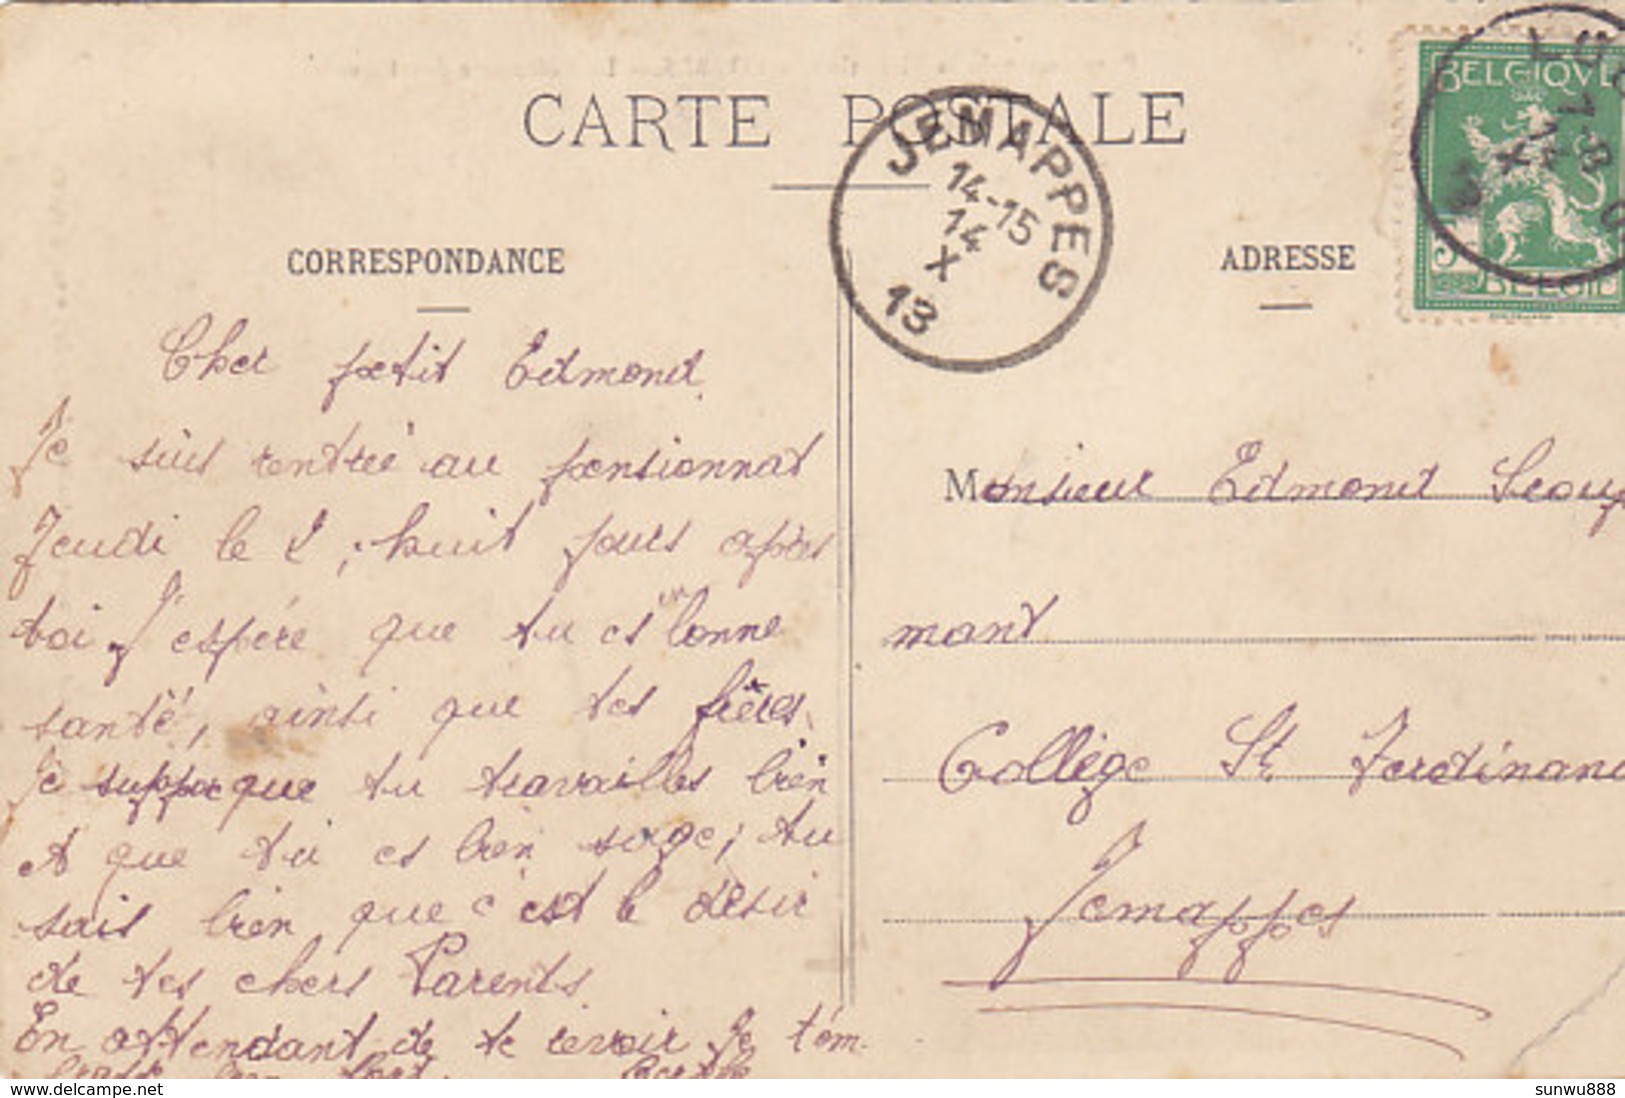 CARTE POSTALE
JEMAPPES
14-15
14
X
13
BELGIQUE
7-8
14
X
5 5
BELGIË
CORRESPONDANCE
ADRESSE
Cher petit Edmond.
Je suis rentrée au pensionnat
Jeudi le 2, huit jours après
toi J'espère que tu es en bonne
santé, ainsi que tes frères.
Je suppose que tu travailles bien
et que tu es bien sage; tu
sais bien que c'est le désir
de tes chers Parents.
En attendant de te revoir je t'em-
brasse bien fort.
Monsieur Edmond Scouf
mant
Collège St Ferdinand
Jemappes
www.delcampe.net
sunwu888